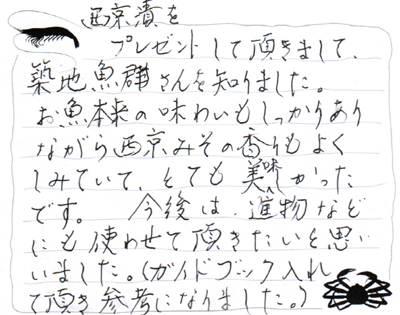 西京漬を
プレゼントして頂きまして、
築地魚群さんを知りました。
お魚本来の味わいもしっかりあり
ながら西京みその香りもよく
しみていて、とても美味しかった
です。 今後は、進物など
にも使わせて頂きたいと思
いました。(ガイドブック入れ
て頂き参考になりました。)